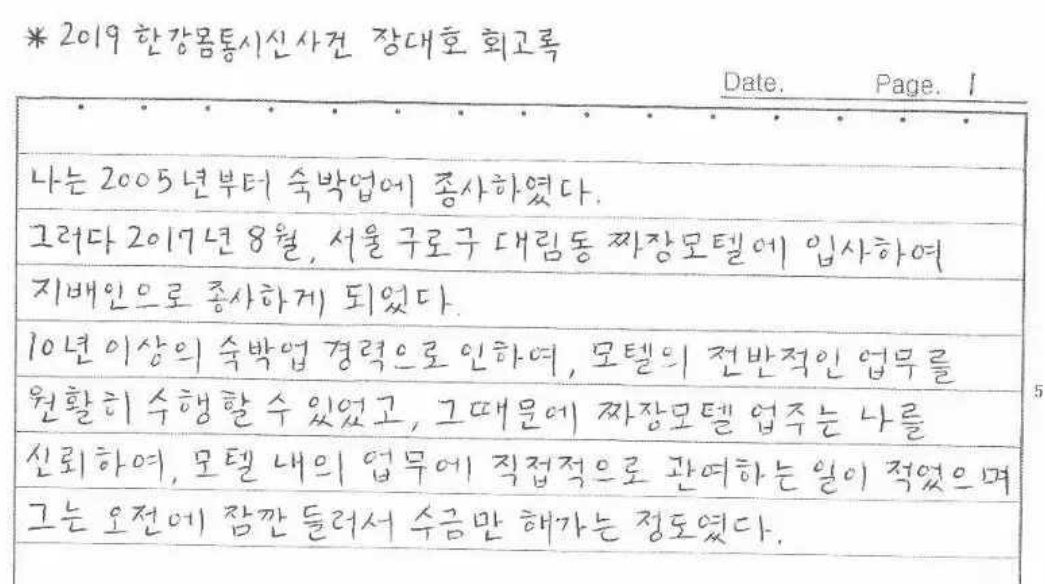 * 2019 한강몸통시신사건 장대호 회고록
Date. Page. 1
나는 2005년부터 숙박업에 종사하였다.
그러다 2017년 8월, 서울 구로구 대림동 짜장모텔에 입사하여
지배인으로 종사하게 되었다.
10년 이상의 숙박업 경력으로 인하여, 모텔의 전반적인 업무를
원활히 수행할 수 있었고, 그때문에 짜장모텔 업주는 나를
5
신뢰하여, 모텔 내의 업무에 직접적으로 관여하는 일이 적었으며
그는 오전에 잠깐 들러서 수금만 해가는 정도였다.